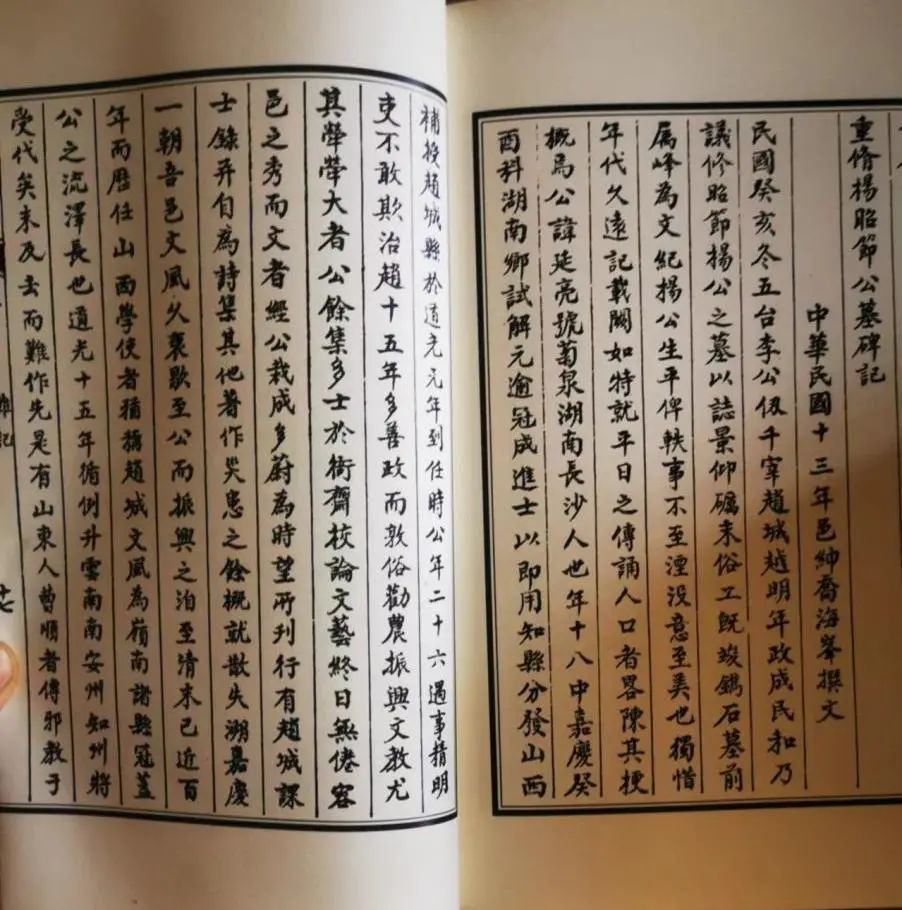 重脩楊昭節公墓碑記
中華民國十三年邑紳喬海峯撰文
民國癸亥冬五台李公伋千宰趙城越明年政成民和乃
議修昭節揚公之墓以誌景仰礪耒俗工既竣鐫石墓前
属峰為文紀揚公生平俾軼事不至湮没意至美也獨惜
年代久遠記載闕如特就平日之傳誦人口者畧陳其梗
概焉公諱延亮號菊泉湖南長沙人也年十八中嘉慶癸
酉科湖南鄉試解元逾冠成進士以即用知縣分發山西
補授趙城縣於道光元年到任時公年二十六遇事精明
吏不敢欺治趙十五年多善政而敦俗勸農振興文教尤
其犖犖大者公餘集多士於衙齋校論文藝終日無倦容
邑之秀而文者經公栽成多蔚為時望所刊行有趙城課
士錄并自為詩集其他著作災患之餘概就散失溯嘉慶
一朝吾邑文風久衰歇至公而振興之洎至清末已近百
年而歷任山西學使者猶稱趙城文風為嶺南諸縣冠蓋
公之流澤長也道光十五年循例升雲南南安州知州將
受代矣未及去而難作先是有山東人曹順者傳邪教于
雜記
十七